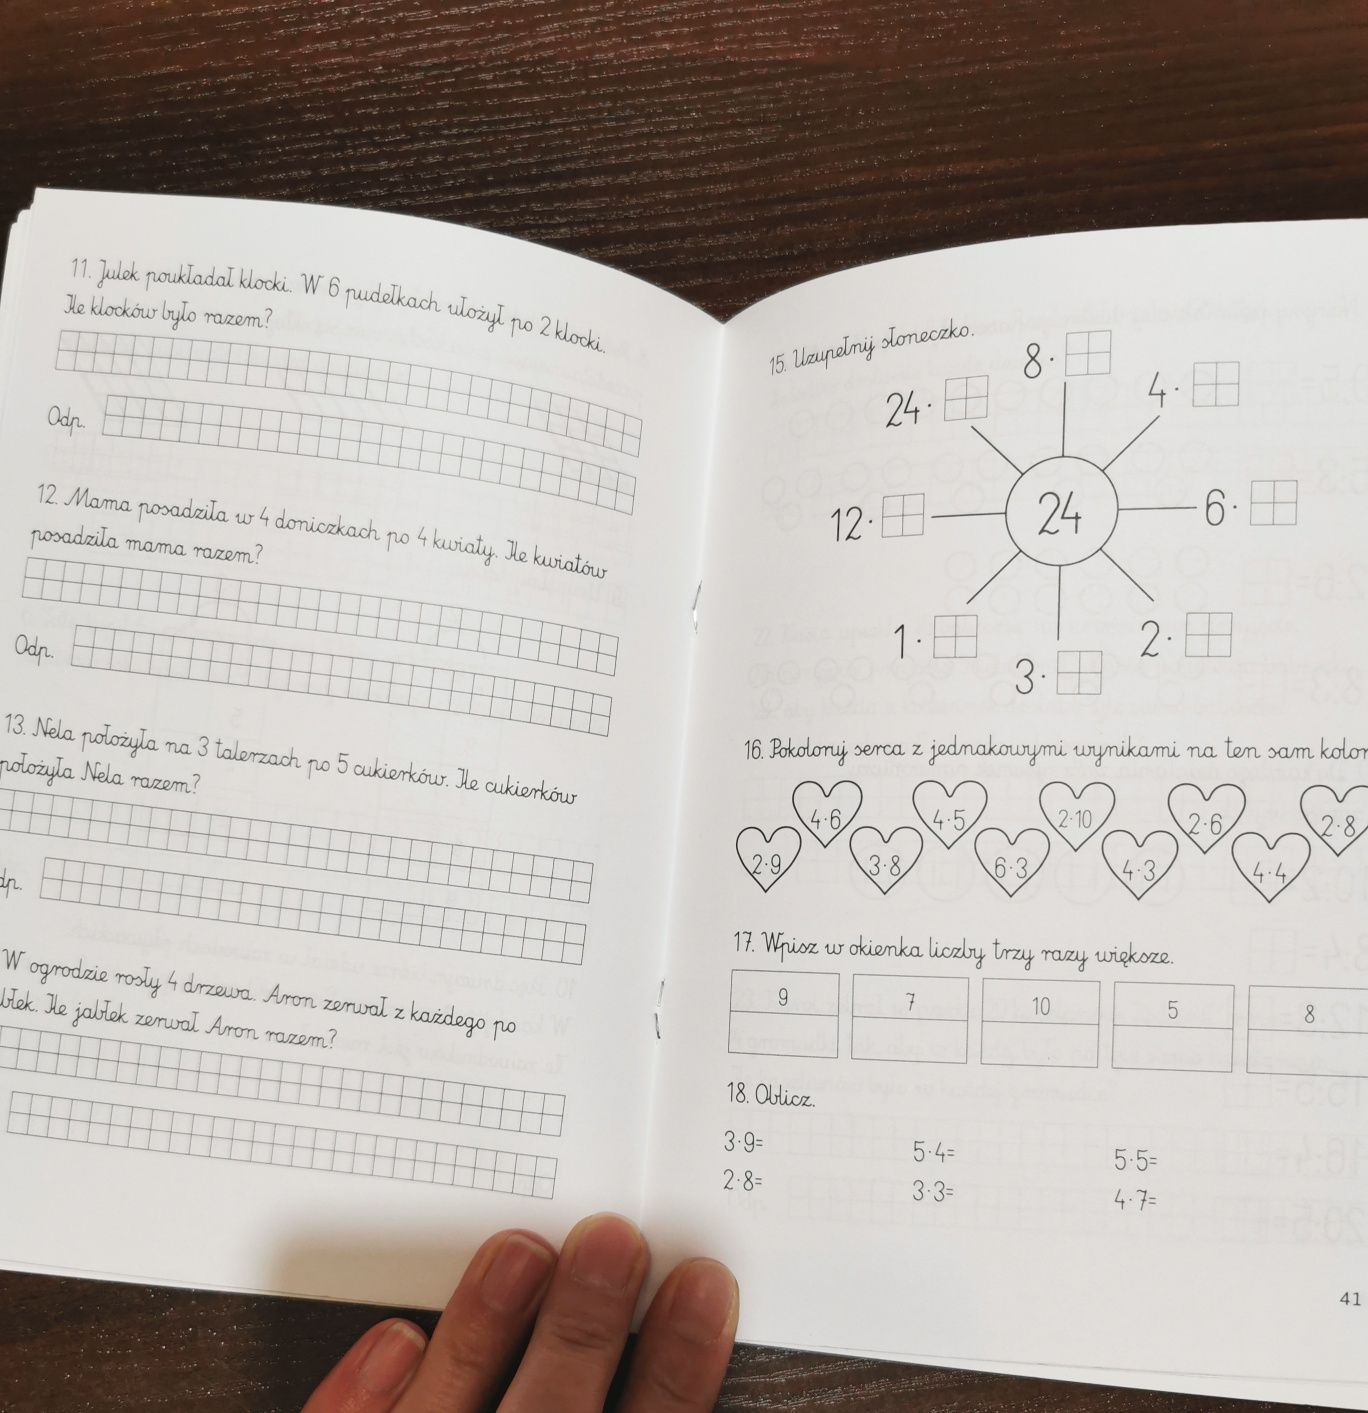 11. Julek poukładał klocki. W 6 pudełkach ułożył po 2 klocki.
Ile klocków było razem?
Odp.
12. Mama posadziła w 4 doniczkach po 4 kwiaty. Ile kwiatów
posadziła mama razem?
Odp.
13. Nela położyła na 3 talerzach po 5 cukierków. Ile cukierków
położyła Nela razem?
dp.
W ogrodzie rosły 4 drzewa. Aron zerwał z każdego po
błek. Ile jabłek zerwał Aron razem?
15. Uzupełnij słoneczko.
8·
24·
4·
12·
24
6·
1·
2·
3·
16. Pokoloruj serca z jednakowymi wynikami na ten sam kolor
4·6 4·5 2·10 2·6 2·8
2·9 3·8 6·3 4·3 4·4
17. Wpisz w okienka liczby trzy razy większe.
9 7 10 5 8
18. Oblicz.
3·9= 5·4= 5·5=
2·8= 3·3= 4·7=
41